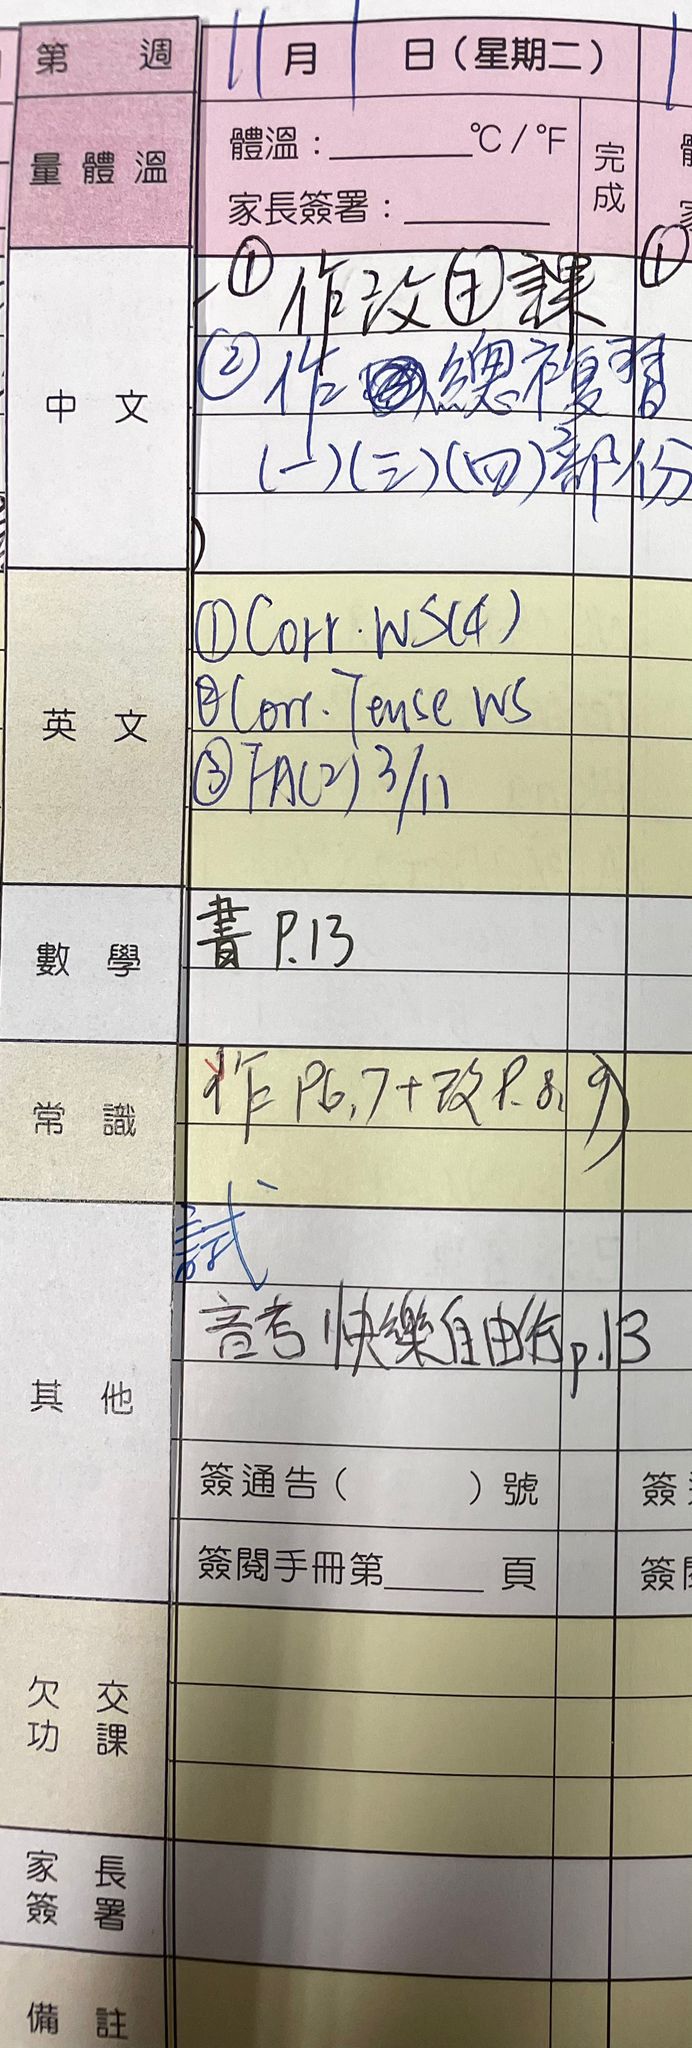 第 週 11月1日(星期二)
量體溫
體溫:______°C/°F
家長簽署:______
完成
中文
①作改日課
②作總複習
(一)(三)(四)部份
英文
①Corr. WS(4)
②Corr. Tense WS
③FA(2) 3/11
數學
書 P.13
常識
作 P6,7+改P.8,9
其他
試
音考 快樂自由行p.13
簽通告( )號
簽閱手冊第______頁
簽
簽
欠交功課
家長簽署
備註